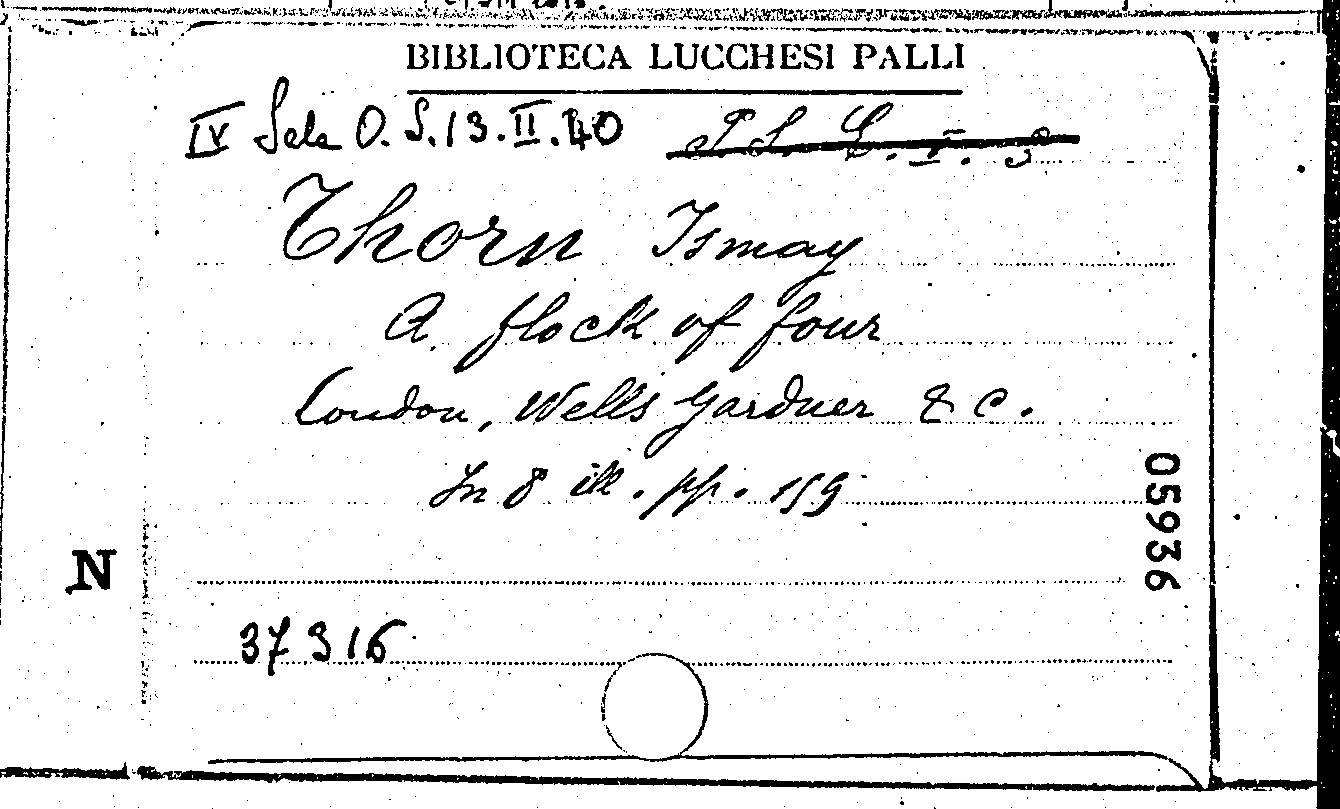 BIBLIOTECA LUCCHESI PALLI
IV Sala O. S. 13. II. 40
Thorn Ismay
A flock of four
London, Wells Gardner & C.
In 8 ill. pp. 159
05936
N
37316